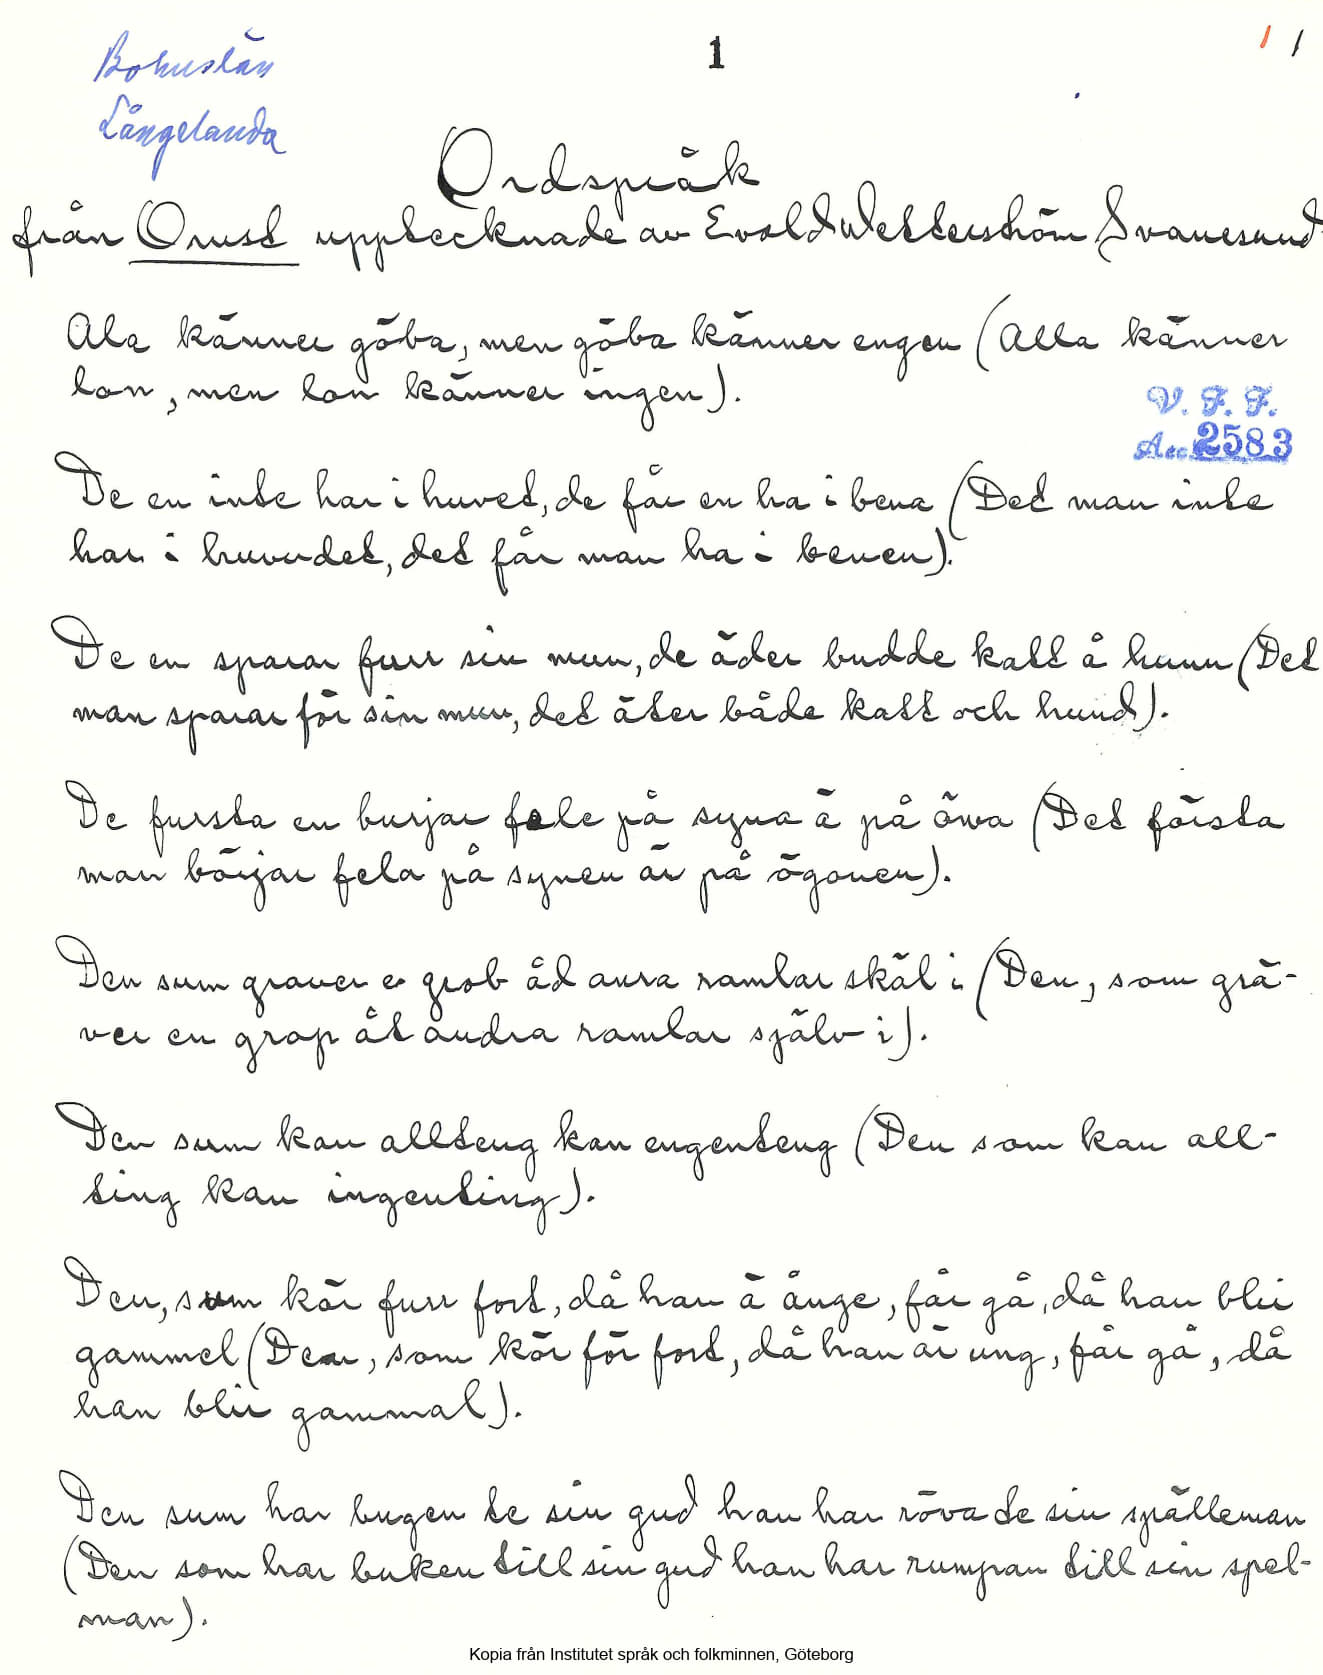 Bohuslän
Långelanda
1
1 1
Ordspråk
från Orust upptecknade av Evald Wetterström Svanesund
Ala känner göba, men göba känner engen (Alla känner
lon, men lon känner ingen).
V. F. F.
Acc. 2583
De en inte har i huvet, de får en ha i bena (Det man inte
har i huvudet, det får man ha i benen).
De en sparar furr sin mun, de äder budde katt å hunn (Det
man sparar för sin mun, det äter både katt och hund).
De fursta en burjar fele på syna ä på öwa (Det första
man börjar fela på synen är på ögonen).
Den sum graver e grob åd anra ramlar skäl i (Den, som grä-
ver en grop åt andra ramlar själv i).
Den sum kan allteng kan engenteng (Den som kan all-
ting kan ingenting).
Den, sum kör furr fort, då han ä ånge, får gå, då han blir
gammel (Den, som kör för fort, då han är ung, får gå, då
han blir gammal).
Den sum har bugen te sin gud han har röva te sin spälleman
(Den som har buken till sin gud han har rumpan till sin spel-
man).
Kopia från Institutet språk och folkminnen, Göteborg